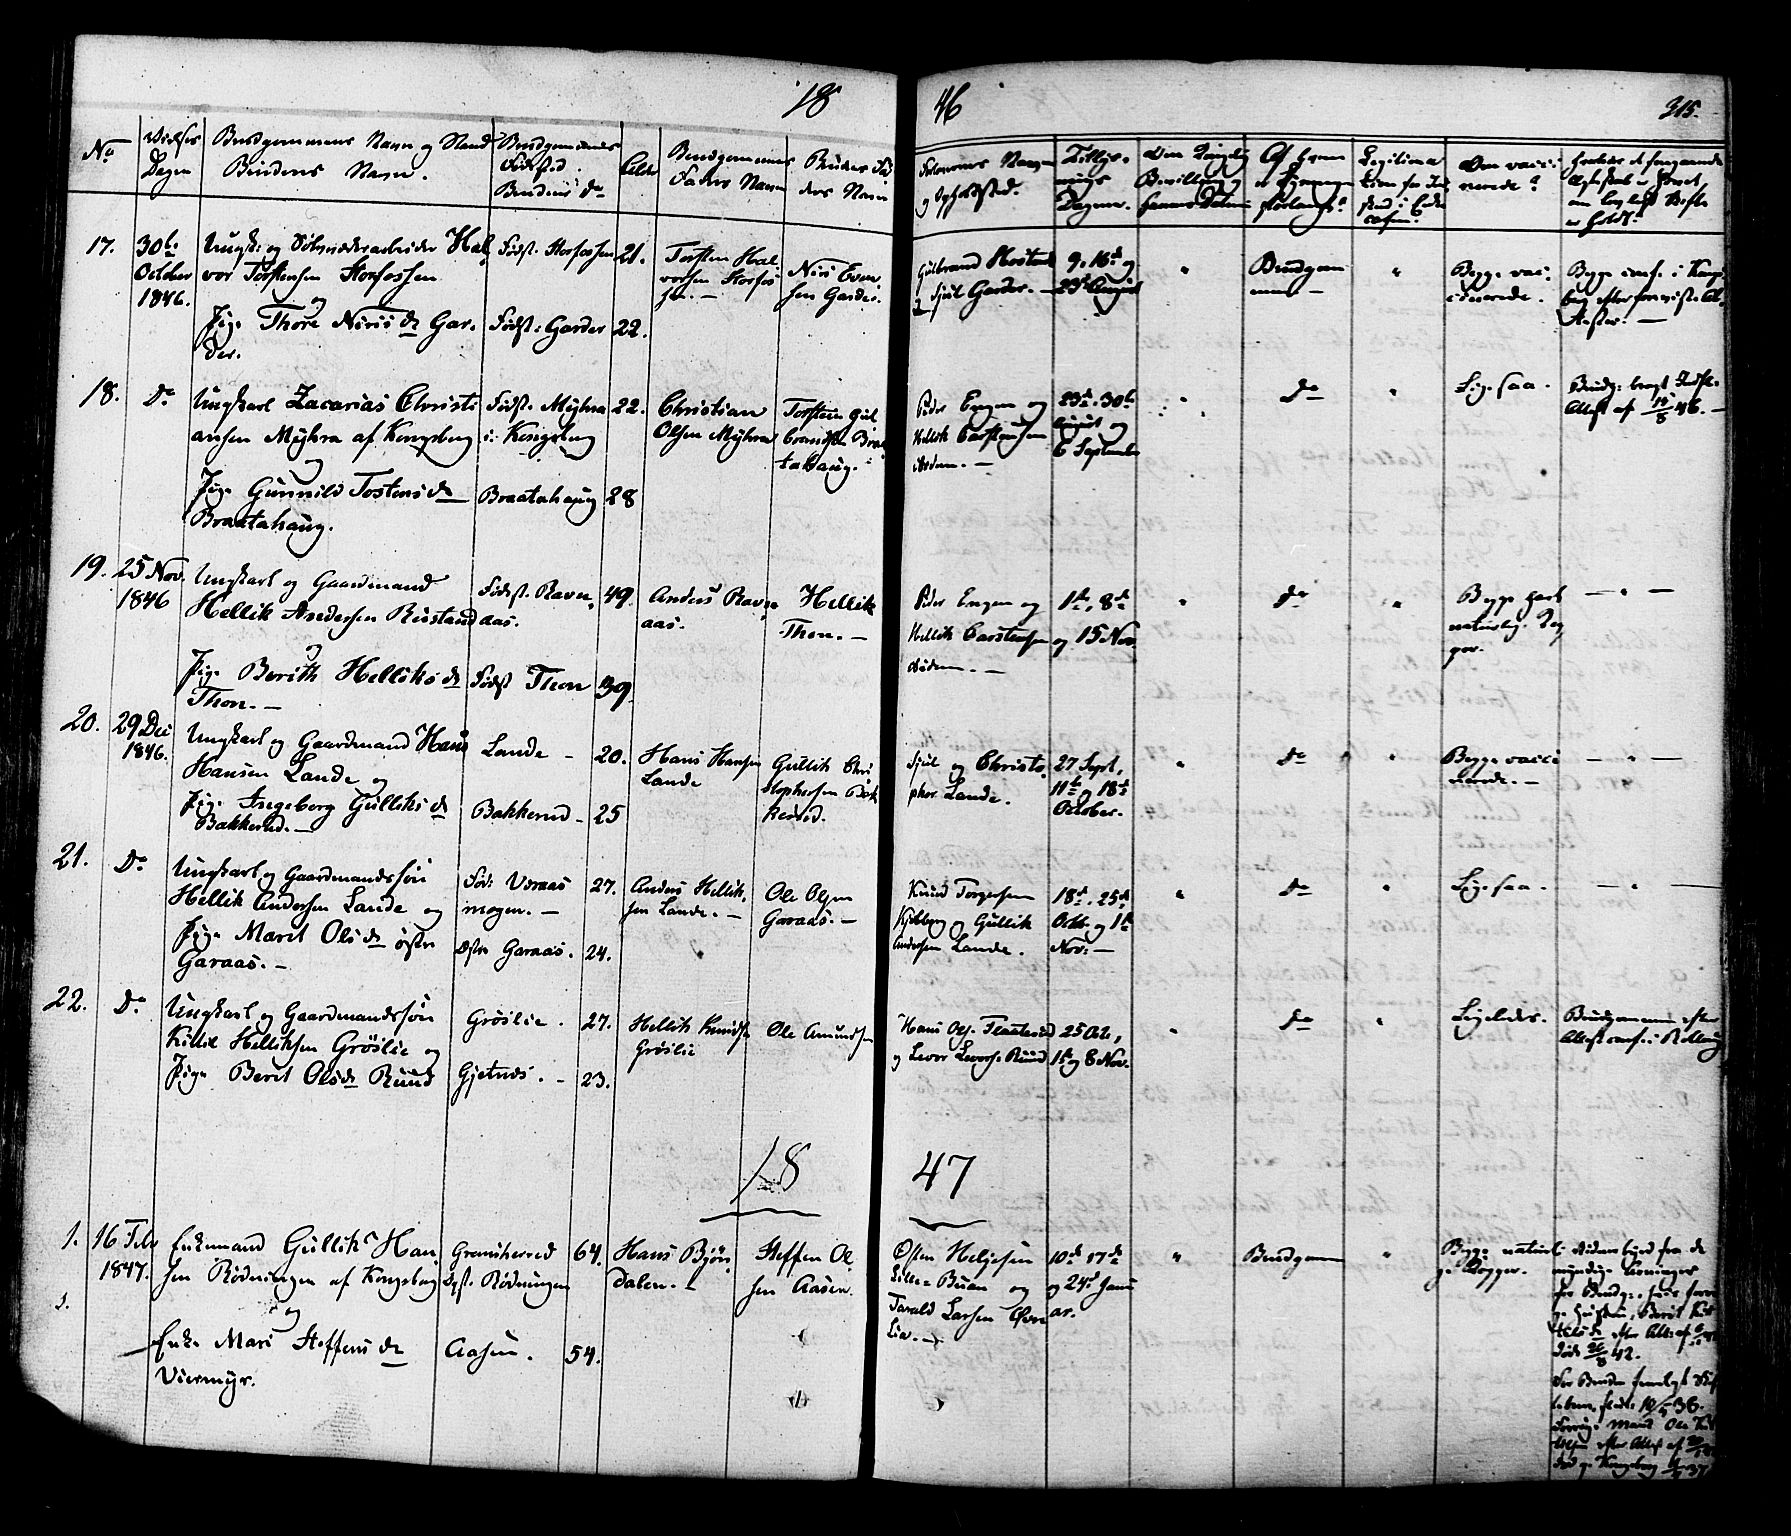 18
46
315.
No
Vielses Dagen
Brudgommens Navn og Stand
Brudens Navn.
Brudgommens Fødsted.
Brudens do
Alder
Brudgommens Faders Navn
Brudens Faders Navn
Forlovernes Navn og Opholdssted.
Tillysnings Dagene.
Om Kongelig Bevilling og sammes Datum
Af hvem er Lysningen forlangt?
Om vaccinerede?
17.
30te October 1846.
Ungk: og Sølvværksarbeider Hal
vor Torstensen Storfossen
og
Pige Thore Nirisdr Gar
der.
Fødst. Storfossen
Fødst: Garder
21.
22.
Torsten Hal
vorsen Storfos
sen. —
Niri Even
sen Garder.
Gulbrand Mostad
og Sjul Garder. —
9, 16de og
23de August
"
Brudgom
men —
"
Begge vac
cinerede.
Begge conf. i Kongs
berg efter foreviste At
tester. —
18.
Do
Ungkarl Zacarias Christi
ansen Myhra af Kongsberg
og
Pige Gunnild Tostensdr
Braatahaug.
Fødst. Myhra
i Kongsberg
Braatahaug
22.
28
Christian
Olsen Myhra
Torsten Gul
brandsen Braa
tahaug.
Peder Engen og
Hellik Carstensen
ibidem. —
23de, 30te
August og
6 September
do
"
Ligesaa.
19.
25 Nov.
1846
Ungkarl og Gaardmand
Hellik Andersen Rustand
og
Pige Berith Helliksdr
Thon. —
Fødst. Ravn
aas.
Fødst Thon
49.
39.
Anders Ravn
aas.
Hellik
Thon. —
Peder Engen og
Hellik Carstensen
ibidem. —
1te, 8de
og 15 Nov.
"
do
"
Begge havt
naturlig. Kop
per.
— " —
20.
29 Dec
1846.
Ungkarl og Gaardmand Hans
Hansen Lande og
Pige Ingeborg Gulliksdr
Bakkerud. —
Lande —
Bakkerud —
20.
25
Hans Hansen
Lande
Gullik Chri
stophersen Bak
kerud.
Sjul og Christo
pher Lande.
27 Sept,
11te og 18de
October.
"
do
"
Begge vacci
nerede. —
— " —
21.
Do
Ungkarl og Gaardmandssøn
Hellik Andersen Lande og
Pige Maret Olsdr østre
Garaas. —
Fød: Veraas
mogen. —
Østre Garaas.
27.
24.
Anders Hellik
sen Lande. —
Ole Olsen
Garaas. —
Knud Torgersen
Kjikberg og Gullik
Andersen Lande.
18de, 25de
Octb. og 1te
Nov: —
"
do
"
Ligesaa.
— " —
22.
Do
Ungkarl og Gaardmandssøn
Kittil Helliksen Grøslie og
Pige Beret Olsdr Ruud
Grøslie.
Gjetnes. —
27.
23.
Hellik Knudsen
Grøslie
Ole Amundsen
Hans Ols. Flaaterud
og Levor Levors. Ruud
25 Oct,
1te og 8 Nov.
"
do
"
Ligeledes.
Brudgommen efter
Attest conf: i Rollaug
18
47
1.
16 Febr
1847.
Enkemand Gullik Han
sen Rødningen af Kongsberg
og
Enke Mari Steffensdr
Viermyr.
Gransherred
Rødningen
Aasen.
64.
54.
Hans Bjørn
dalen.
Steffen Ol
sen Aasen.
Østen Helgesen
Lille-Buen og
Tarald Larsen Øvre
Lia. —
10de 17de
og 24de Janu
ar.
"
Brudgom
"
Begge naturli
ge Kopper.